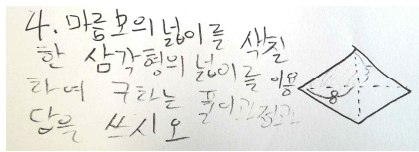 4. 마름모의 넓이를 색칠
한 삼각형의 넓이를 이용
하여 구하는 풀이과정과
답을 쓰시오
5
8